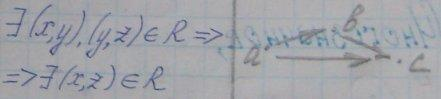 ∃(x,y),(y,z)∈R =>
=>∃(x,z)∈R
a b c